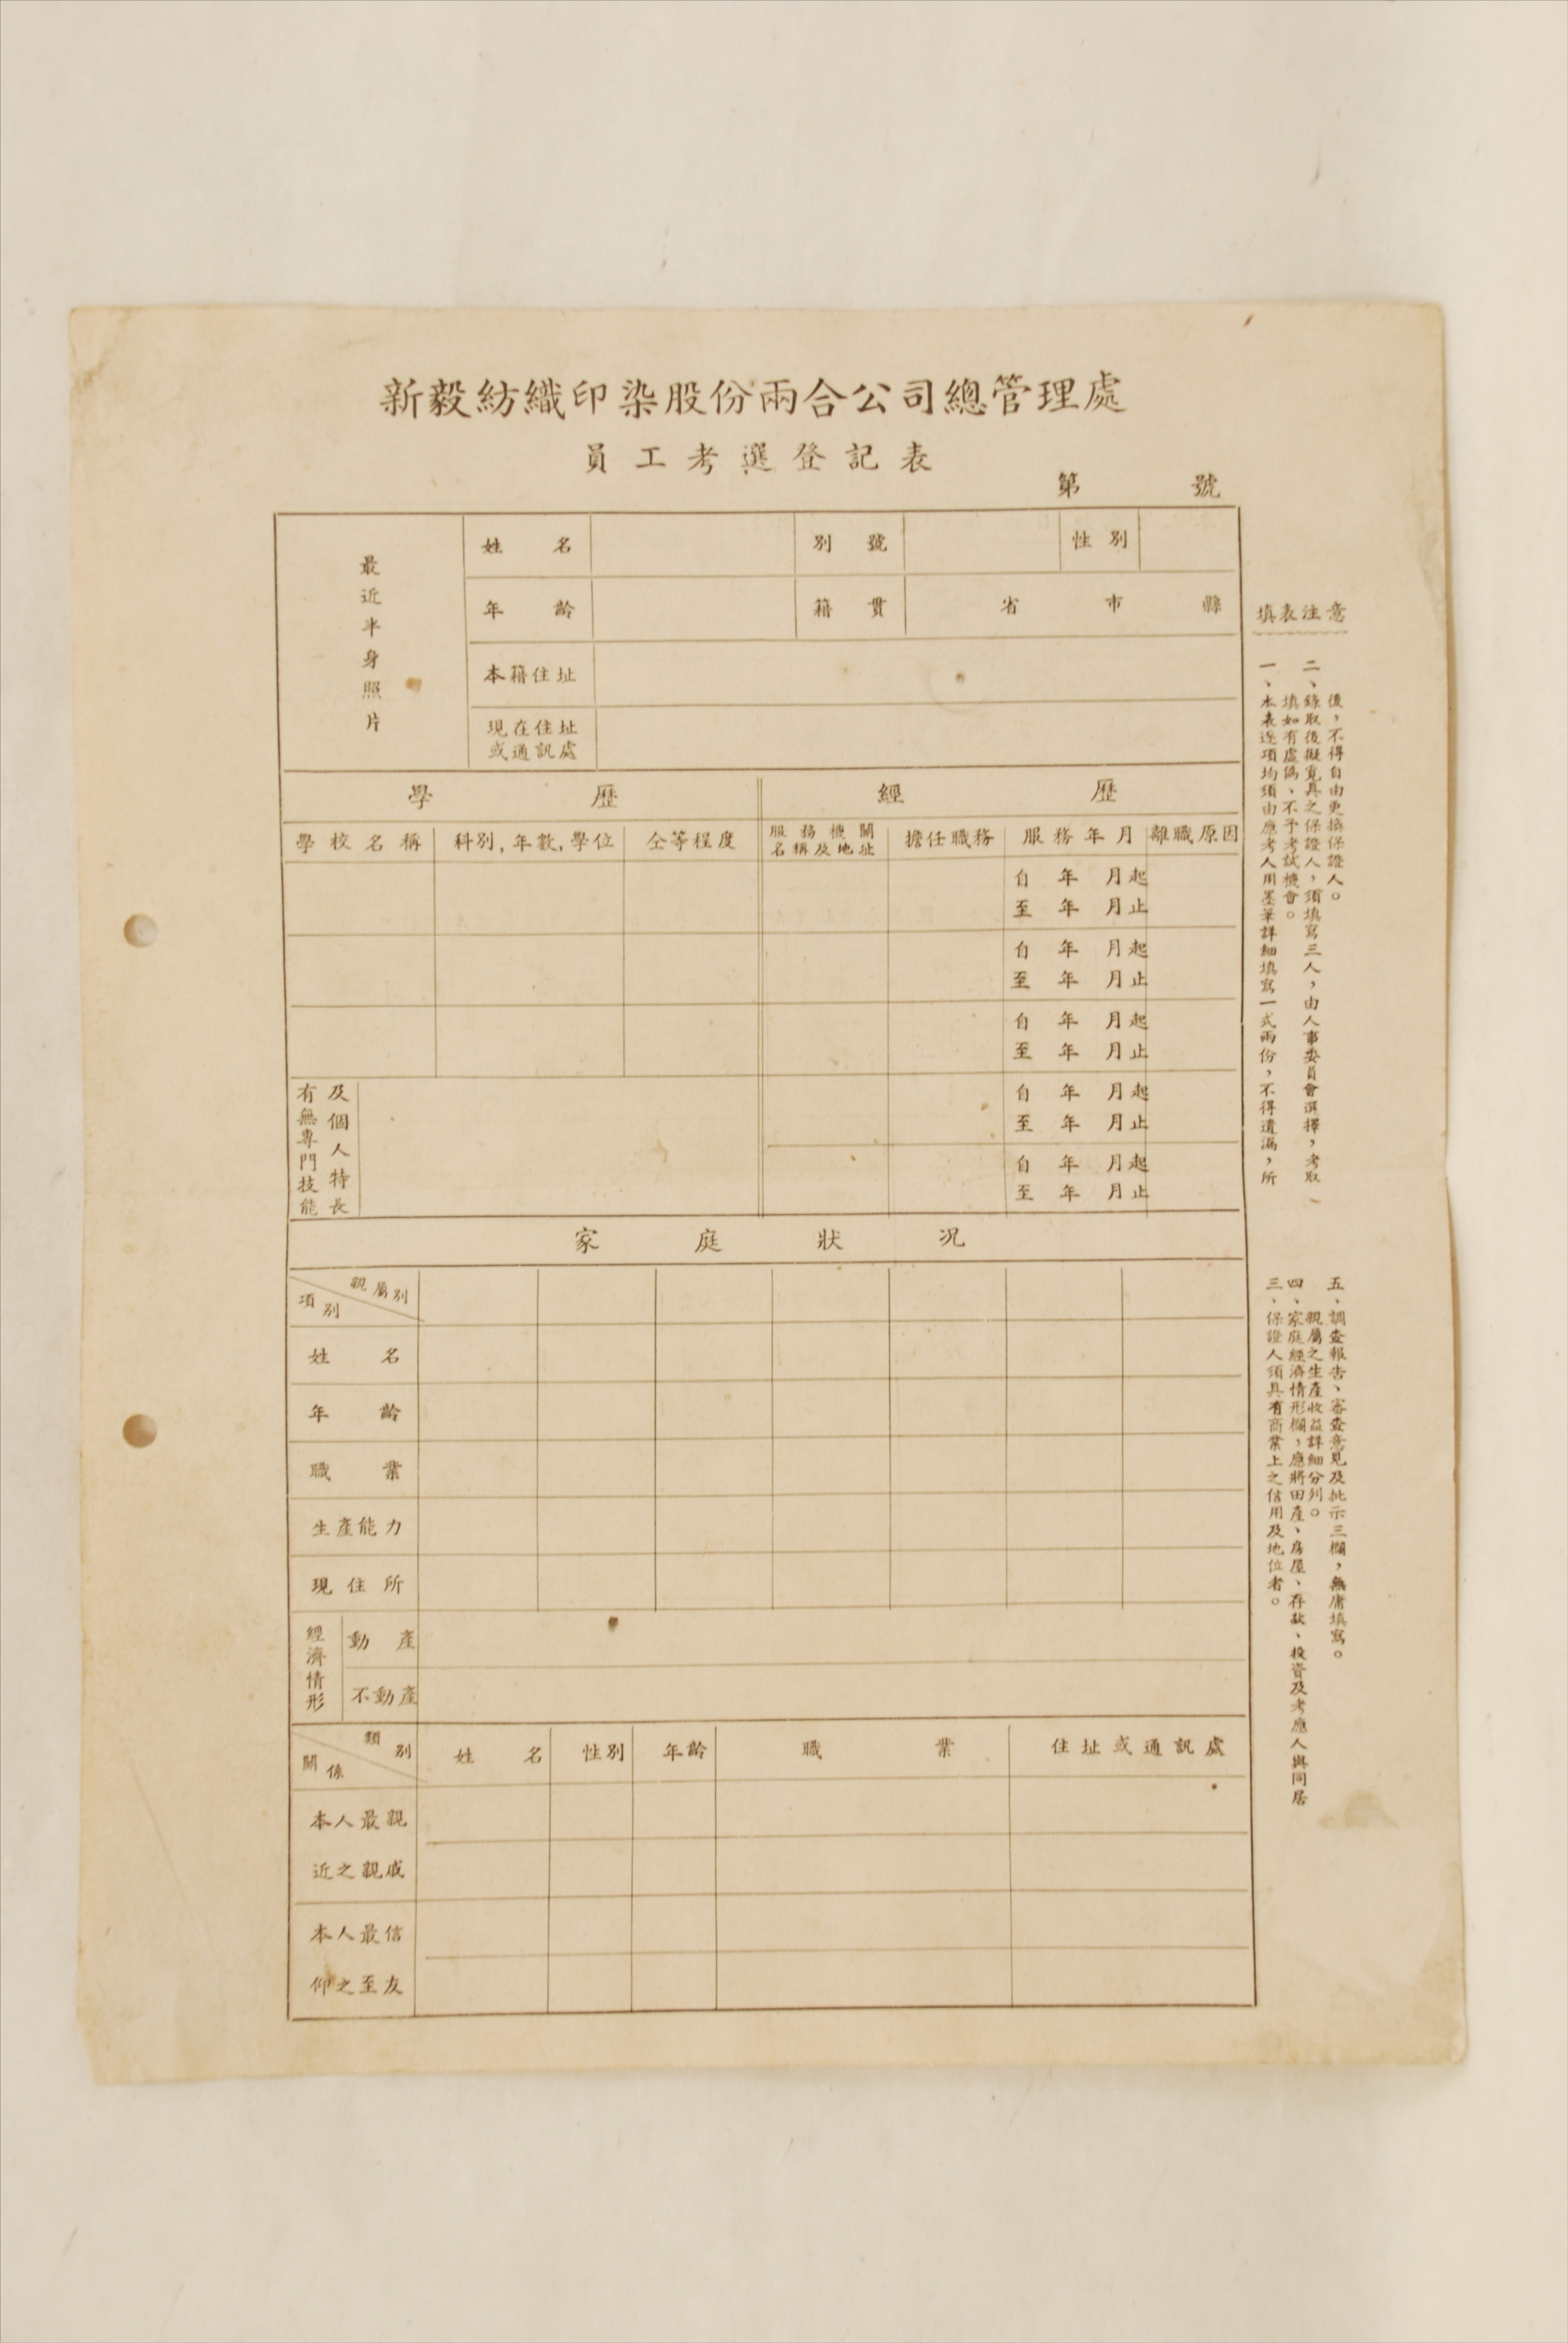 新毅紡織印染股份兩合公司總管理處
員工考選登記表
第 號
最近半身照片
姓 名
別 號
性 別
年 齡
籍 貫
省 市 縣
本籍住址
現在住址
或通訊處
學 歷
經 歷
學校名稱
科別,年數,學位
仝等程度
服務機關
名稱及地址
擔任職務
服務年月
離職原因
自 年 月起
至 年 月止
自 年 月起
至 年 月止
自 年 月起
至 年 月止
自 年 月起
至 年 月止
自 年 月起
至 年 月止
有無專門技能
及個人特長
家 庭 狀 況
親屬別
項別
姓 名
年 齡
職 業
生產能力
現住所
經濟情形
動 產
不動產
類別
關係
姓 名
性別
年齡
職 業
住址或通訊處
本人最親
近之親戚
本人最信
仰之至友
填表注意
一、本表逐項均須由應考人用墨筆詳細填寫一式兩份，不得遺漏，所
填如有虛偽、不予考試機會。
二、錄取後擬覓具之保證人，須填寫三人，由人事委員會選擇，考取
後，不得自由更換保證人。
三、保證人須具有商業上之信用及地位者。
四、家庭經濟情形欄，應將田產、房屋、存款、投資及考應人與同居
親屬之生產收益詳細分列。
五、調查報告、審查意見及批示三欄，無庸填寫。